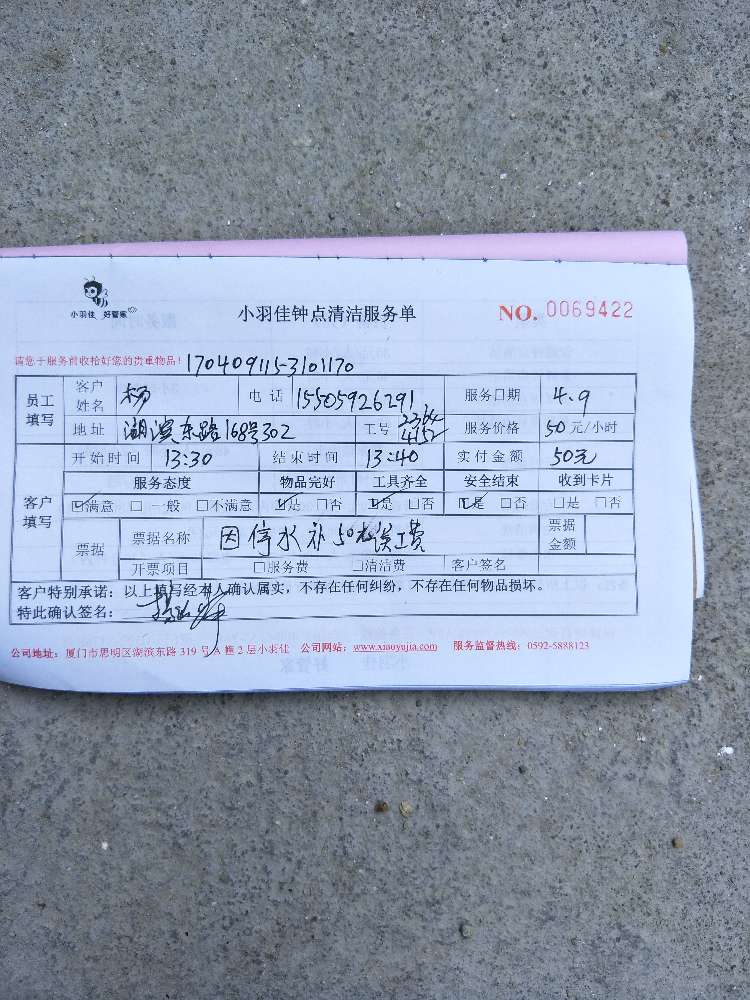 小羽佳 好管家
小羽佳钟点清洁服务单
NO. 0069422
请您于服务前收拾好您的贵重物品! 170409115-3101170
员工填写 客户姓名 杨 电话 15505926291 服务日期 4.9
地址 湖滨东路168号302 工号 2364 4152 服务价格 50元/小时
客户填写 开始时间 13:30 结束时间 13:40 实付金额 50元
服务态度 物品完好 工具齐全 安全结束 收到卡片
☑满意 □一般 □不满意 ☑是 □否 ☑是 □否 ☑是 □否 □是 □否
票据 票据名称 因停水补50元误工费 票据金额
开票项目 □服务费 □清洁费 客户签名
客户特别承诺:以上填写经本人确认属实,不存在任何纠纷,不存在任何物品损坏。
特此确认签名:
公司地址:厦门市思明区湖滨东路319号A幢2层小羽佳 公司网站:www.xiaoyujia.com 服务监督热线:0592-5888123